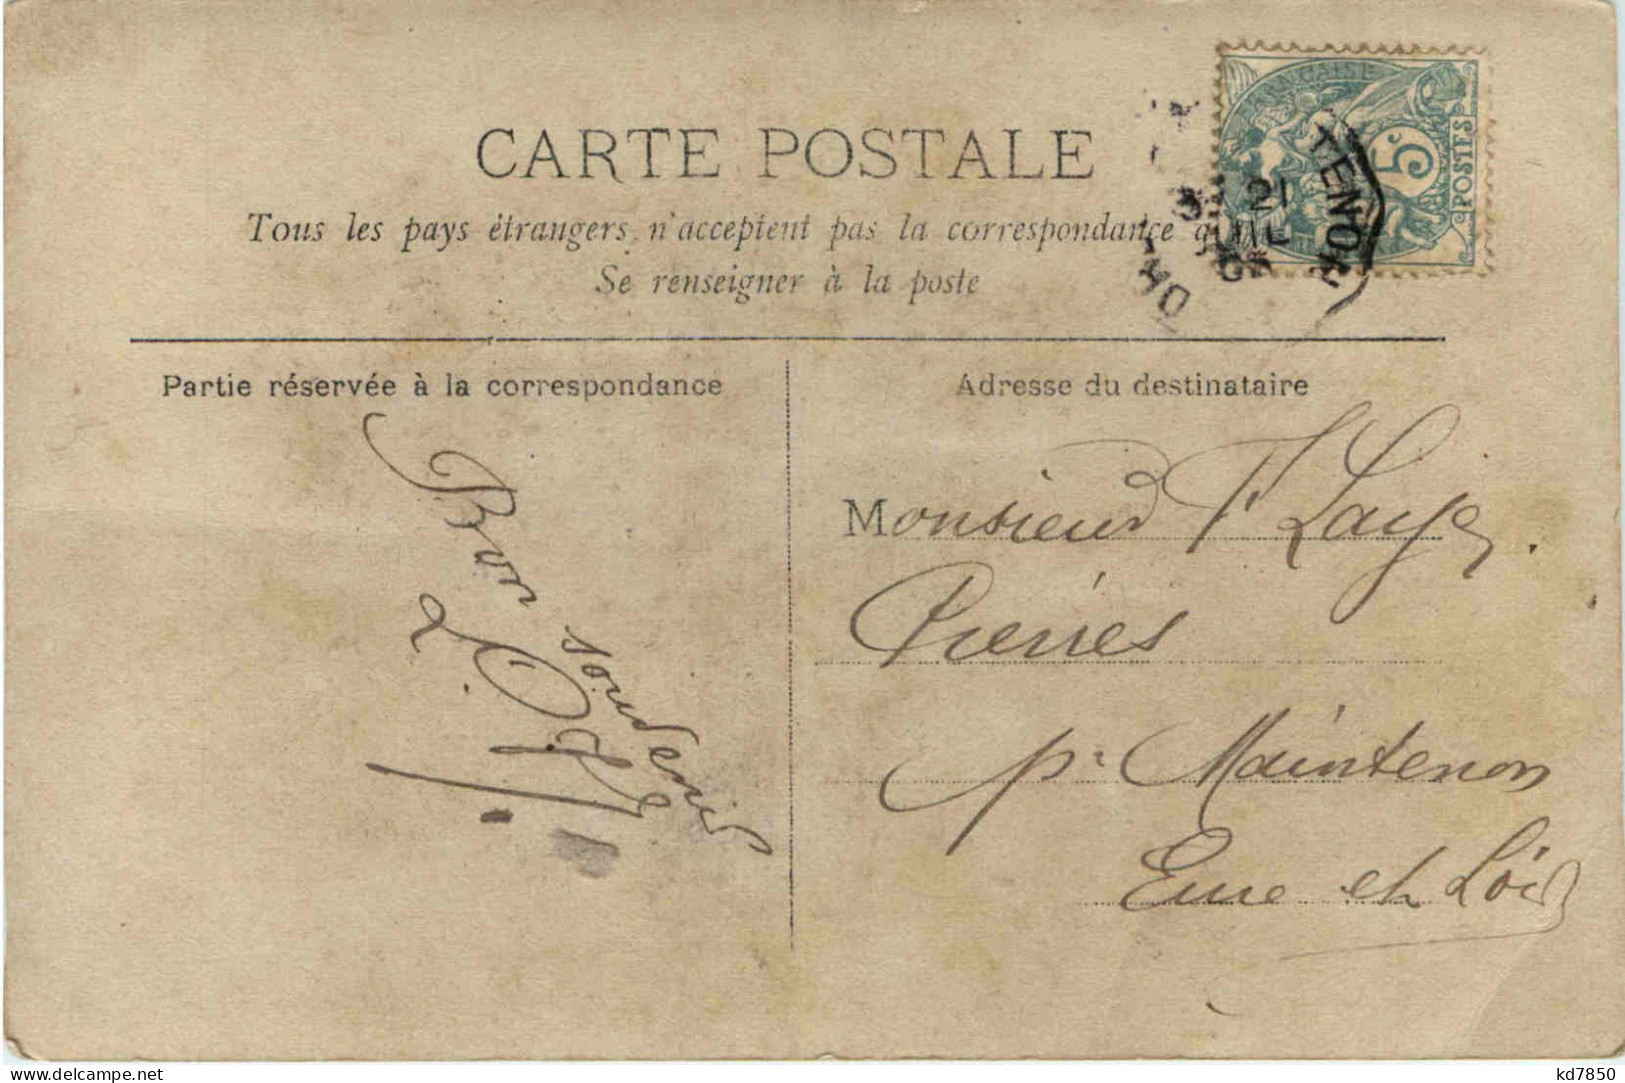 CARTE POSTALE
Tous les pays étrangers n'acceptent pas la correspondance
Se renseigner à la poste
FRANÇAISE
5c
POSTES
21
Partie réservée à la correspondance
Adresse du destinataire
Bon
souvenir
Monsieur F. Laye
Pierres
pr Maintenon
Eure et Loir
kd7850